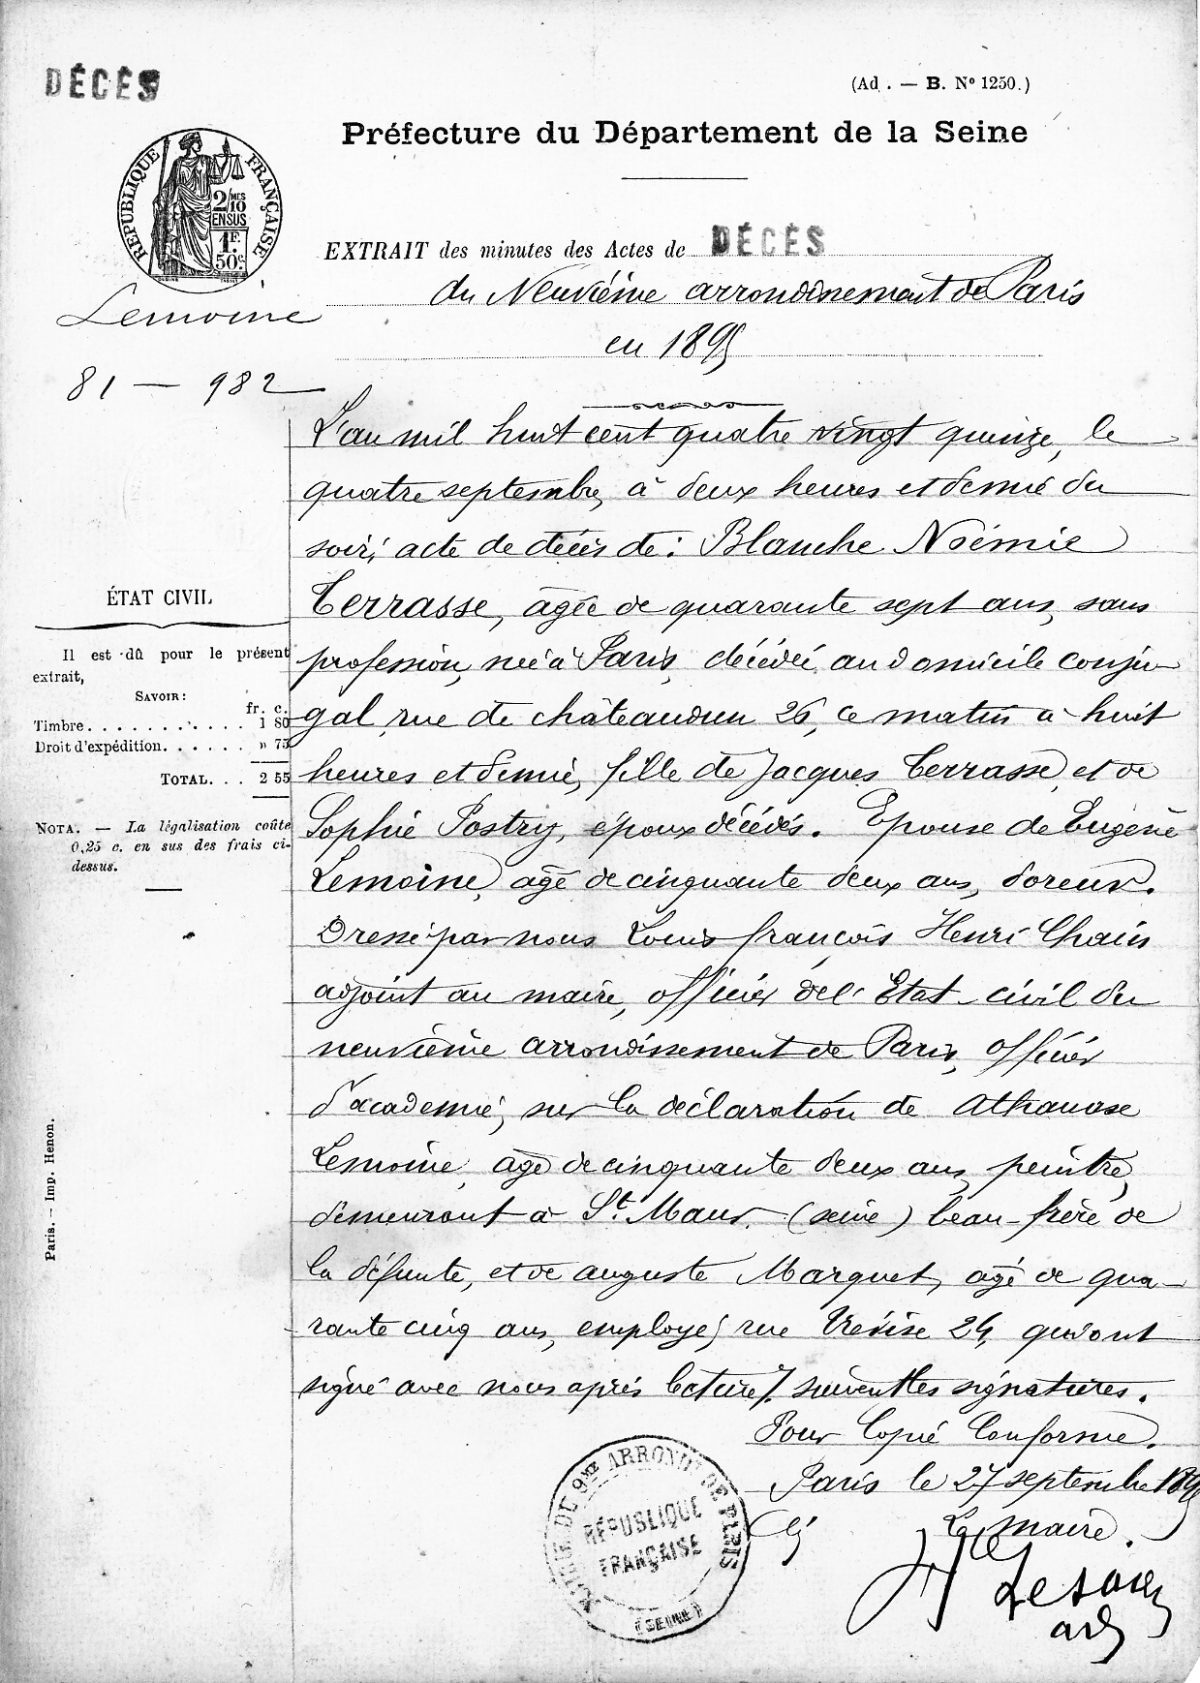 DÉCÈS
(Ad. — B. Nº 1250.)
Préfecture du Département de la Seine
RÉPUBLIQUE FRANÇAISE
2/10 MES
EN SUS
1F.
50c.
EXTRAIT des minutes des Actes de DÉCÈS
du Neuvième arrondissement de Paris
en 1895
Lemoine
81 — 982
L'an mil huit cent quatre vingt quinze, le
quatre septembre, à deux heures et demie du
soir; acte de décès de: Blanche Noémie
Terrasse, âgée de quarante sept ans, sans
profession, née à Paris, décédée au domicile conju-
gal, rue de châteaudun 26, ce matin à huit
heures et demie, fille de Jacques Terrasse, et de
Sophie Postry, époux décédés. Epouse de Eugène
Lemoine, âgé de cinquante deux ans, doreur.
Dressé par nous Louis françois Henri Chain
adjoint au maire, officier de l'Etat-civil du
neuvième arrondissement de Paris, officier
d'académie; sur la déclaration de Athanase
Lemoine, âgé de cinquante deux ans, peintre,
demeurant à St. Maur (seine) beau-frère de
la défunte, et de auguste Marquet, âgé de qua-
rante cinq ans, employé, rue Trévise 24, qui ont
signé avec nous après lecture /. suivent les signatures.
Pour Copie Conforme.
Paris le 27 septembre 189
Le Maire.
ÉTAT CIVIL
Il est dû pour le présent
extrait,
SAVOIR:
fr. c.
Timbre . . . . . . . . . . 1 80
Droit d'expédition. . . . . . » 75
TOTAL. . . 2 55
NOTA. — La légalisation coûte
0,25 c. en sus des frais ci-
dessus.
Paris. — Imp. Henon.
MAIRIE DU 9ME ARRONDT DE PARIS
RÉPUBLIQUE
FRANÇAISE
(SEINE)